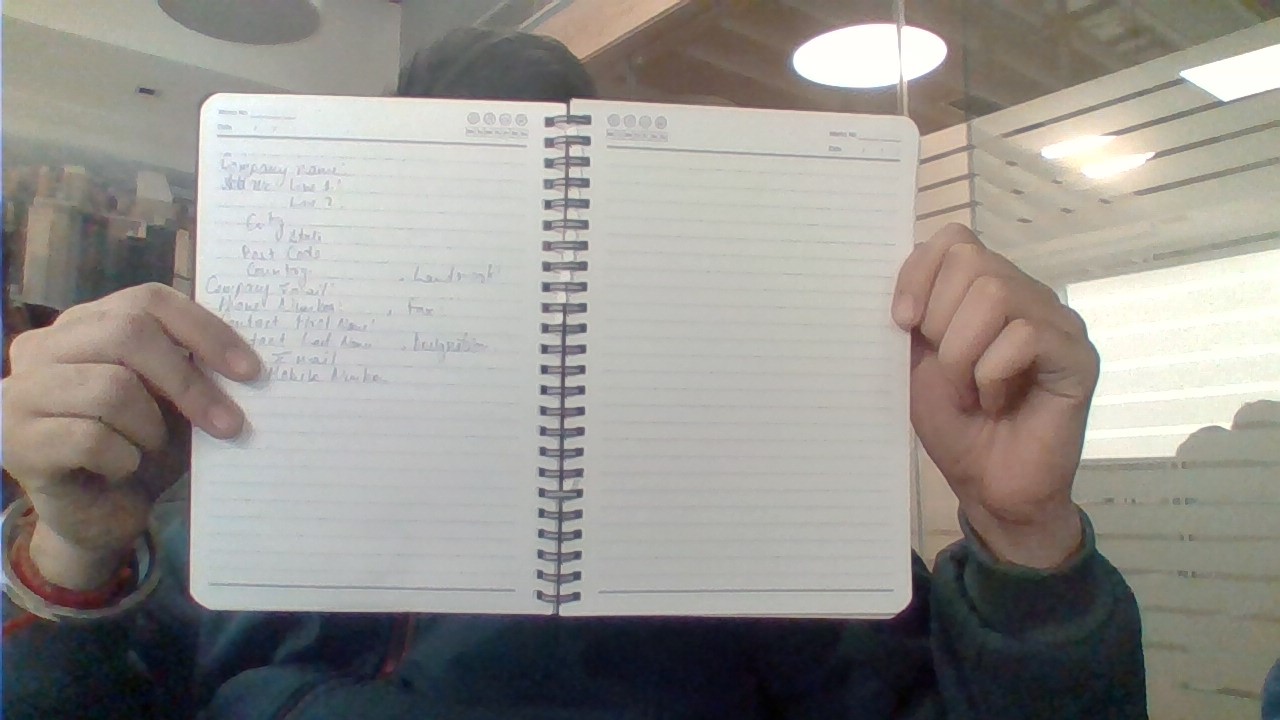 Memo No.
Date
Memo No.
Date
Company name:
Line 1:
Line 2
City
State
Post Code
Country , Landmark
Company Email:
Phone Number: , Fax
Contact First Name:
Last Name , Designation
Email
Mobile Number